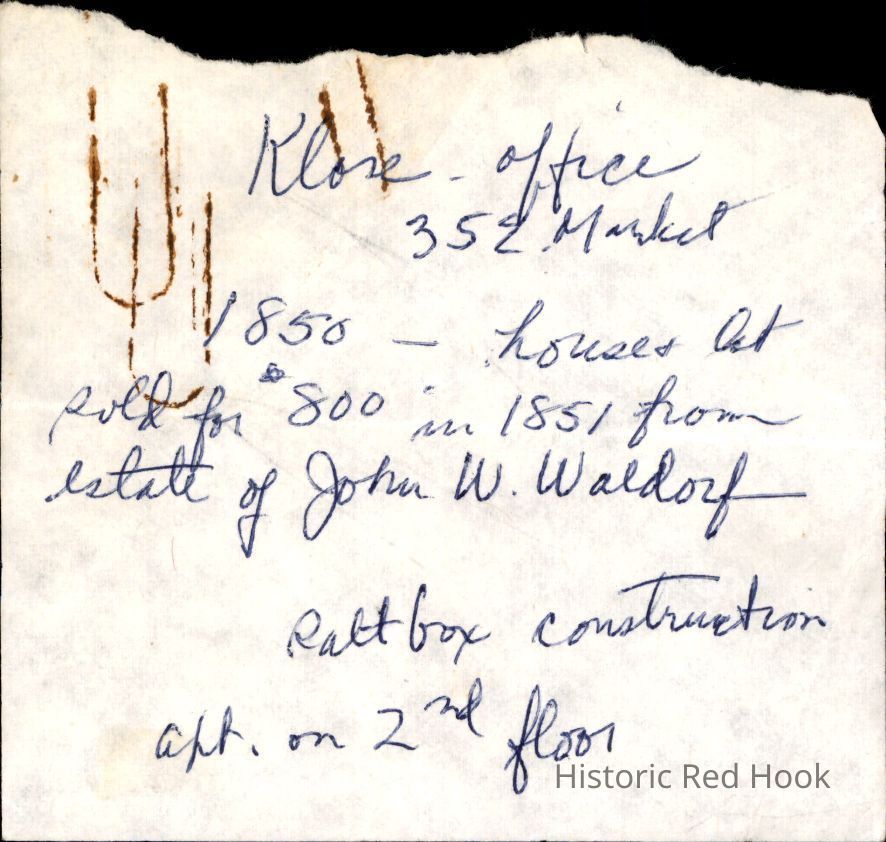 Klose - office
352 Market
1850 — houses lot
sold for $800 in 1851 from
estate of John W. Waldorf
saltbox construction
apt. on 2nd floor
Historic Red Hook